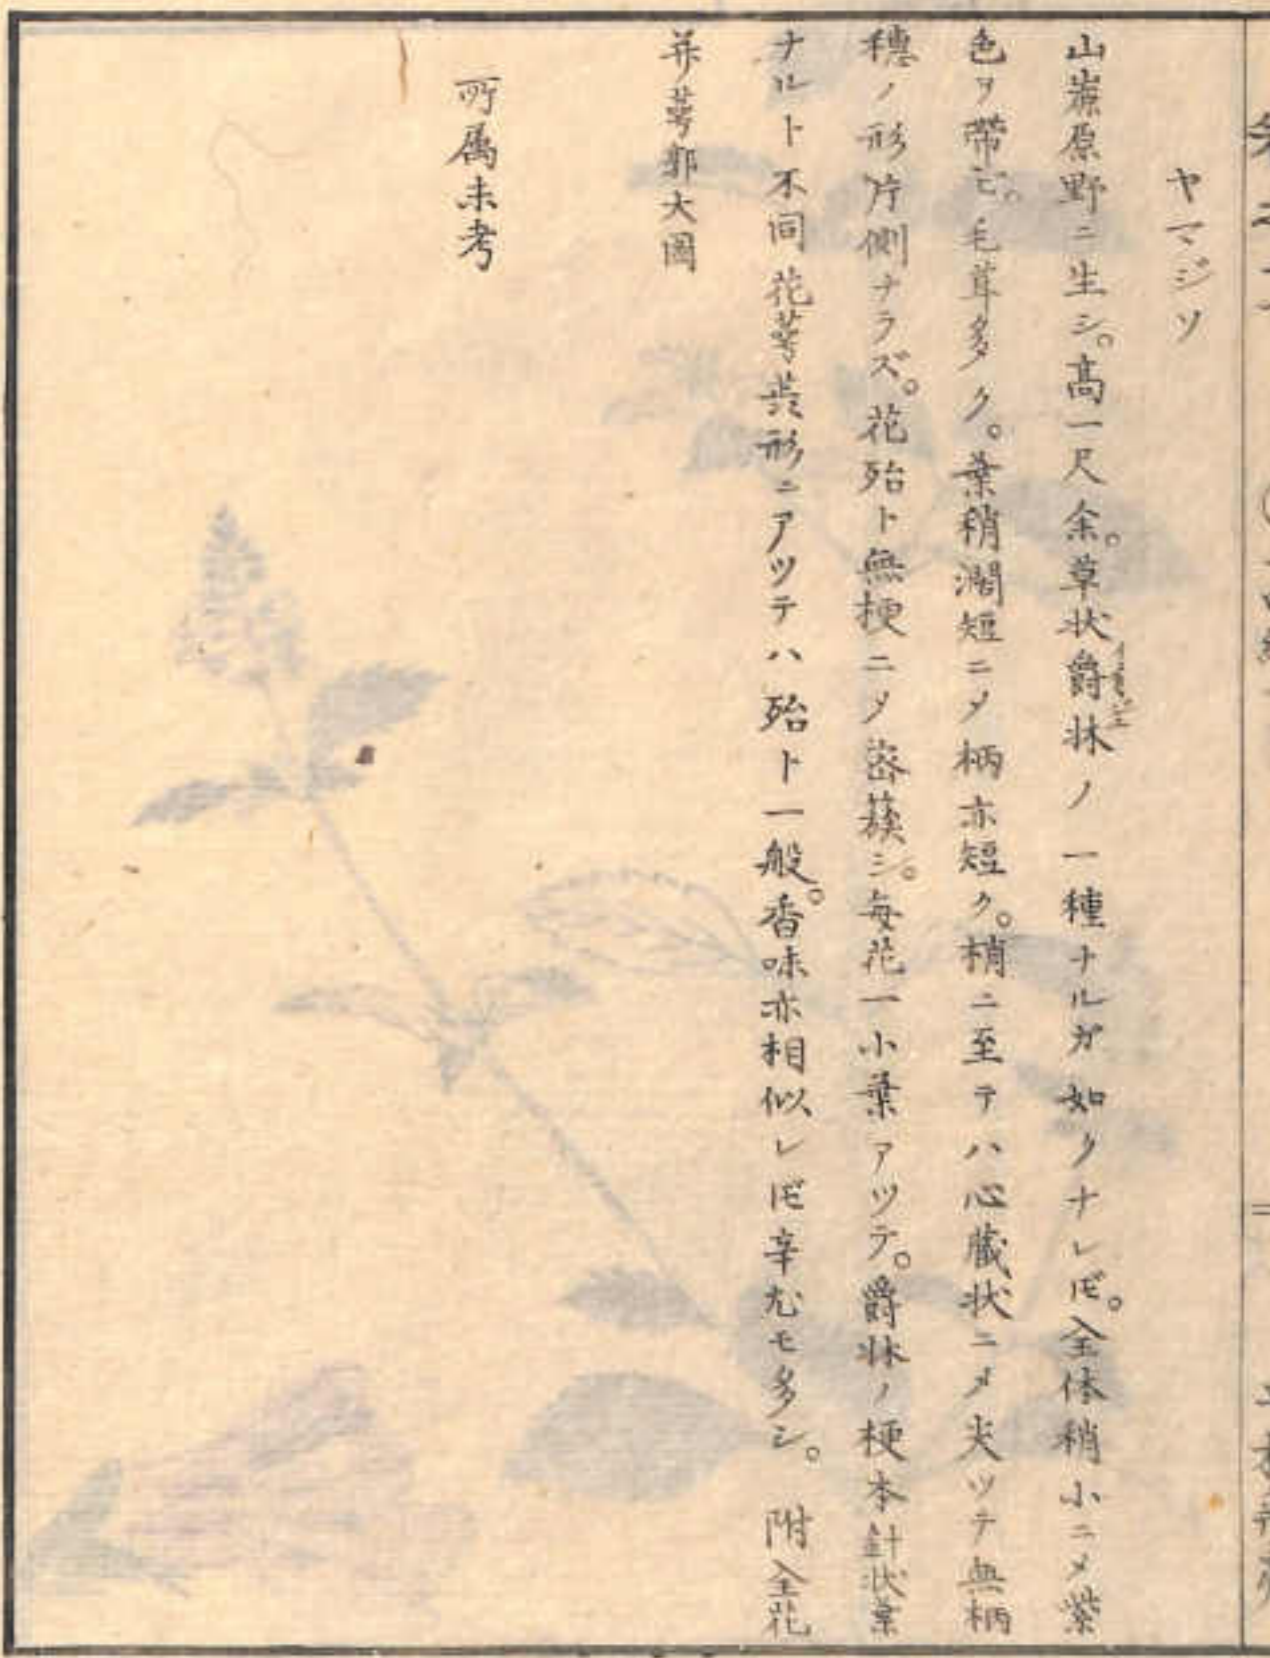 ヤマジソ
山蔴原野ニ生シ。高一尺余。草状爵牀ノ一種ナルガ如クナレ𪜈。全体稍小ニメ紫
色ヲ帶ビ。毛茸多ク。葉稍濶短ニメ柄亦短ク。梢ニ至テハ心臓状ニメ尖ツテ無柄
穗ノ形片側ナラズ。花殆ト無梗ニメ密蔟シ。每花一小葉アツテ。爵牀ノ梗本針状葉
ナルト不同花萼形ニアツテハ殆ト一般。香味亦相似レ𪜈辛尤モ多シ。 附全花
并萼郭大圖
所属未考